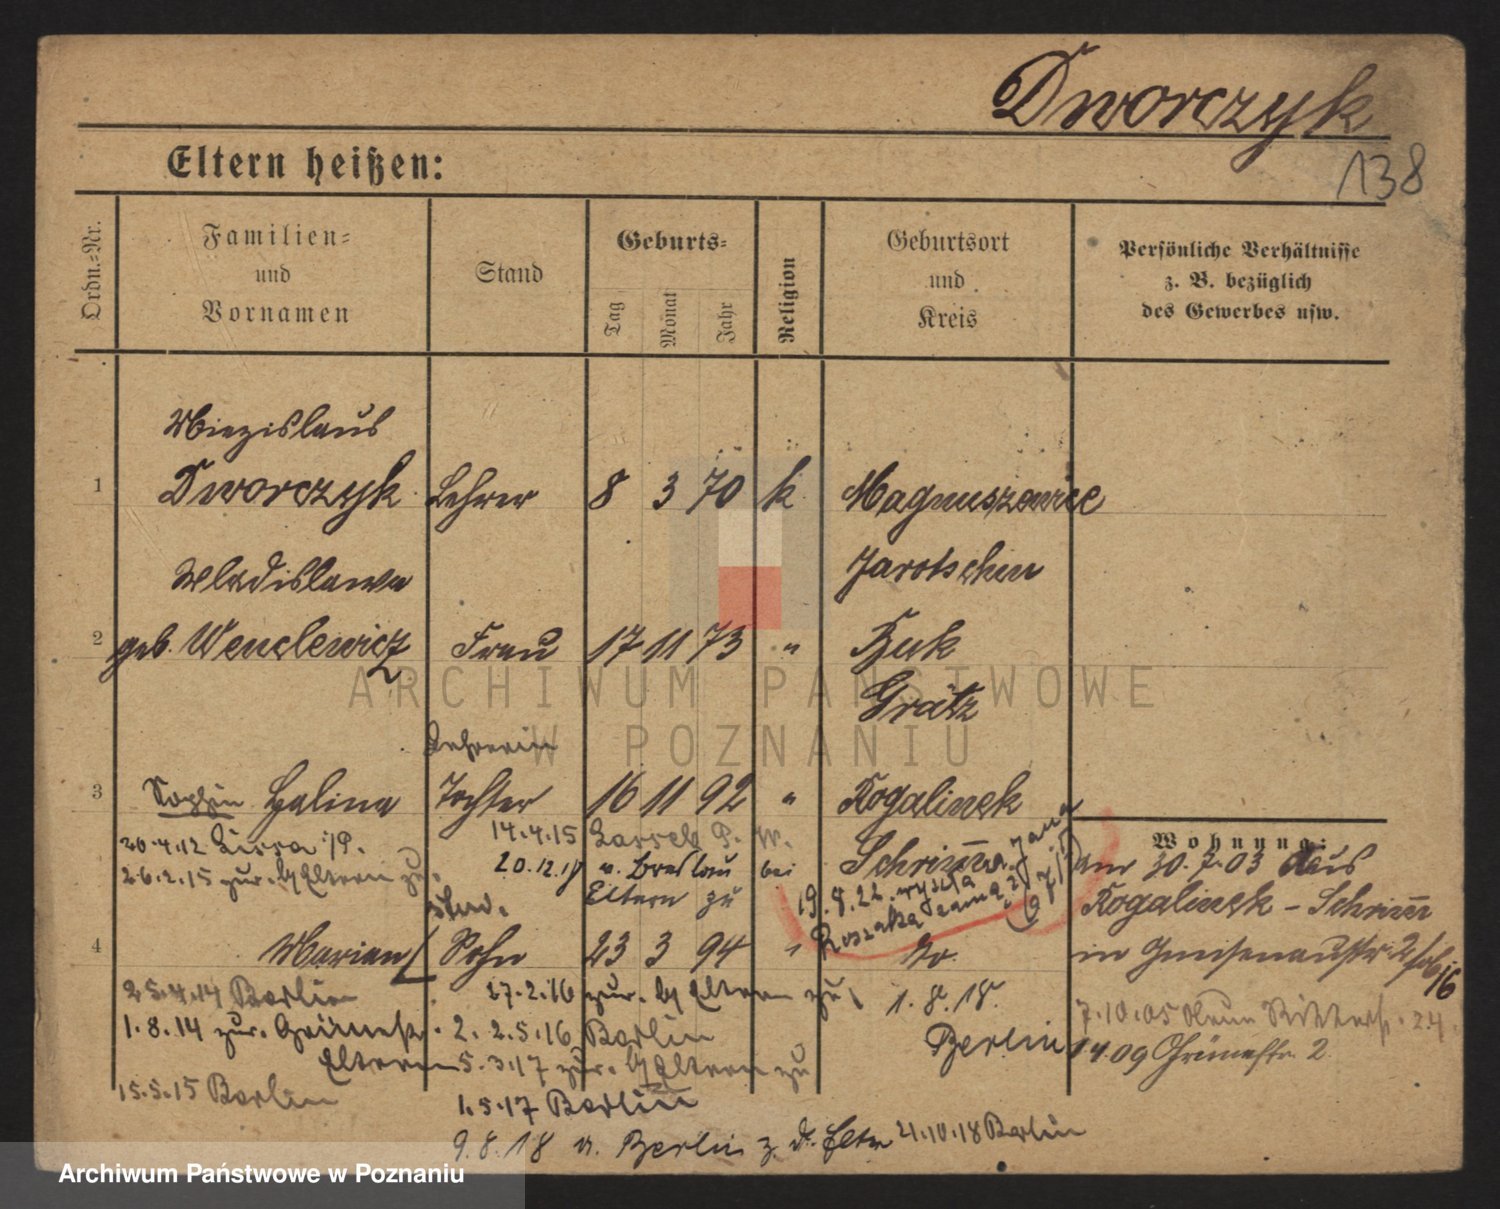 Dworczyk
138
Eltern heißen:
Ordn.-Nr.
Familien- und Vornamen
Stand
Geburts-
Tag
Monat
Jahr
Religion
Geburtsort und Kreis
Persönliche Verhältnisse z. B. bezüglich des Gewerbes usw.
Miezislaus
1 Dworczyk Lehrer 8 3 70 k Magnuszewice
Wladislawa Jarotschin
2 geb. Wenclewicz Frau 17 11 73 " Buk
Grätz
Lehrerin
3 Sophie Halina Tochter 16 11 92 " Rogalinek
14.4.15
Schrimm
Wohnung:
20.4.12 Lissa i/P.
20.12.17 v. Breslau bei
am 30.7.03 aus
26.2.15 zur. Eltern zu
Eltern zu
19.8.22
Rogalinek - Schrimm
stud.
4 Marian Sohn 23 3 94 " do.
in Gneisenaustr. 2
25.4.14 Berlin
27.2.16 zur. Eltern zu
1.8.18.
7.10.05 Ritterstr. 24.
1.8.14 zur. Grünestr.
2.5.16 Berlin
Berlin
1 4 09 Grünestr. 2
Eltern
5.3.17 zur. Eltern zu
15.5.15 Berlin
1.5.17 Berlin
9.8.18 v. Berlin z. d. Eltern
21.10.18 Berlin
ARCHIWUM PAŃSTWOWE
W POZNANIU
Archiwum Państwowe w Poznaniu